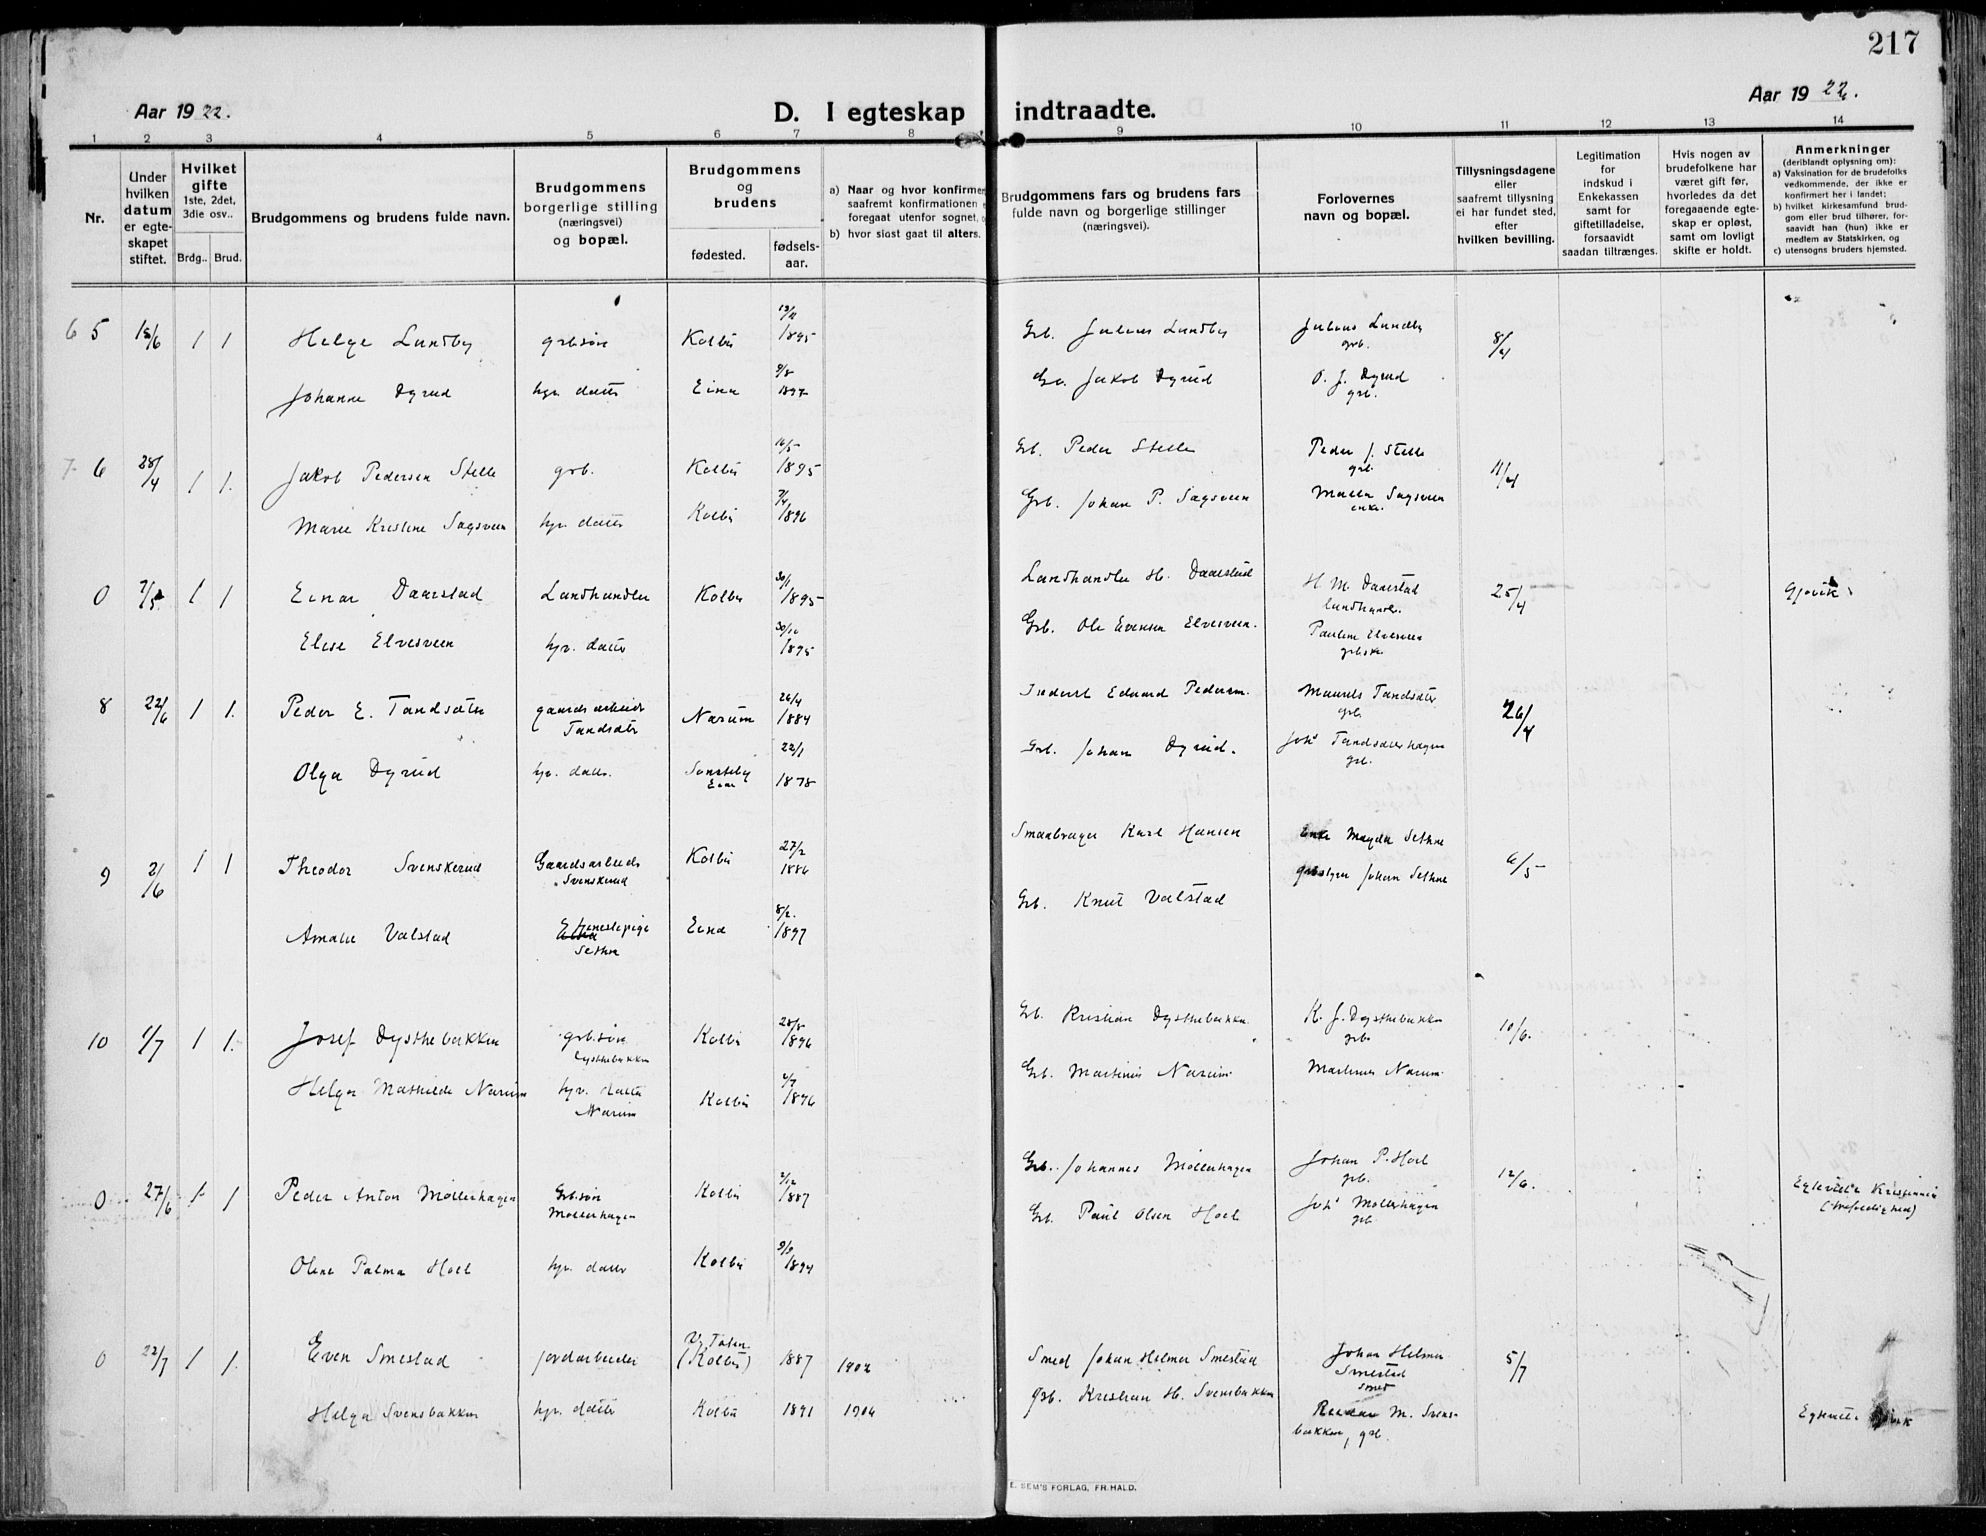 217
Aar 1922.
D. I egteskap indtraadte.
Aar 1922.
1 2 3 4 5 6 7 8 9 10 11 12 13 14
Nr.
Under hvilken datum er egteskapet stiftet.
Hvilket gifte 1ste, 2det, 3die osv..
Brdg.. Brud.
Brudgommens og brudens fulde navn.
Brudgommens borgerlige stilling (næringsvei) og bopæl.
Brudgommens og brudens
fødested. fødselsaar.
a) Naar og hvor konfirmer saafremt konfirmationen foregaat utenfor sognet,
b) hvor sidst gaat til alters.
Brudgommens fars og brudens fars fulde navn og borgerlige stillinger (næringsvei).
Forlovernes navn og bopæl.
Tillysningsdagene eller saafremt tillysning ei har fundet sted, efter hvilken bevilling.
Legitimation for indskud i Enkekassen samt for giftetilladelse, forsaavidt saadan tiltrænges.
Hvis nogen av brudefolkene har været gift før, hvorledes da det foregaaende egteskap er opløst, samt om lovligt skifte er holdt.
Anmerkninger (deriblandt oplysning om): a) Vaksination for de brudefolks vedkommende, der ikke er konfirmert her i landet; b) hvilket kirkesamfund brudgom eller brud tilhører, forsaavidt han (hun) ikke er medlem av Statskirken, og c) utensogns bruders hjemsted.
5 1 1 Helge Lundby grbsøn Kolbu 1895 Grb. Julius Lundby Julius Lundby grb. 8/4
Johanne Dyrud hjv. datter Eina 9/8 1897 Jakob Dyrud O. J. Dyrud grb.
6 28/4 1 1. Jakob Pedersen Stelle grb. Kolbu 16/5 1895 Grb. Peder Stelle Peder J. Stelle grb. 11/4
Marie Kristine Sagsveen hjv. datter Kolbu 7/4 1896 Grb. Johan P. Sagsveen Sagsveen enke.
0 7/5 1 1 Einar Daarstad Landhandler Kolbu 30/1 1895 Landhandler H. Daarstad H. M. Daarstad landhandl. 25/4 Gjøvik
Elise Elvesveen hjv. datter 30/10 1895 Grb. Ole Evensen Elvesveen. Pauline Elvesveen grbske.
8 22/6 1 1. Peder E. Tandsæter gaardsarbeider Tandsæter Narum 26/4 1884 Inderst Edvard Pedersen. Tandsæter grb. 26/4
Olga Dyrud hjv. datter. Eina 22/1 1878 Grb. Johan Dyrud. Johs Tandsæterhagen grb.
9 2/6 1 1 Theodor Svenskerud Gaardsarbeider Svenskerud Kolbu 27/2 1886 Smaabruger Karl Hansen Enke Magda Sethne 6/5
Amalie Valstad tjenestepige Sethne Eina 8/2. 1897 Grb. Knut Valstad Johan Sethne
10 1/7 1 1. Josef Dysthebakken grbsøn Dysthebakken Kolbu 28/8 1896 Grb. Kristian Dysthebakken K. J. Dysthebakken grb. 10/6.
Helga Mathilde Narum hjv. datter Narum Kolbu 1896 Grb. Martinus Narum. Martinus Narum
0 27/6 1 1 Peder Anton Møllerhagen Grbsøn Møllerhagen Kolbu 2/12 1887 Grb. Johannes Møllerhagen Johan P. Hoel grb. 12/6. Egteviet Kristiania
Oline Palma Hoel hjv. datter Kolbu 9/9 1894 Grb. Paul Olsen Hoel Johs Møllerhagen grb.
0 22/7 1 1. Even Smestad jordarbeider V. Toten (Kolbu) 1887 1902 Smed Johan Hilmer Smestad Johan Hilmer Smestad smed 5/7
Helga Svensbakken hjv. datter Kolbu 1891 1906 Grb. Kristian H. Svensbakken M. Svensbakken, grb.
E. SEM'S FORLAG, FR.HALD.